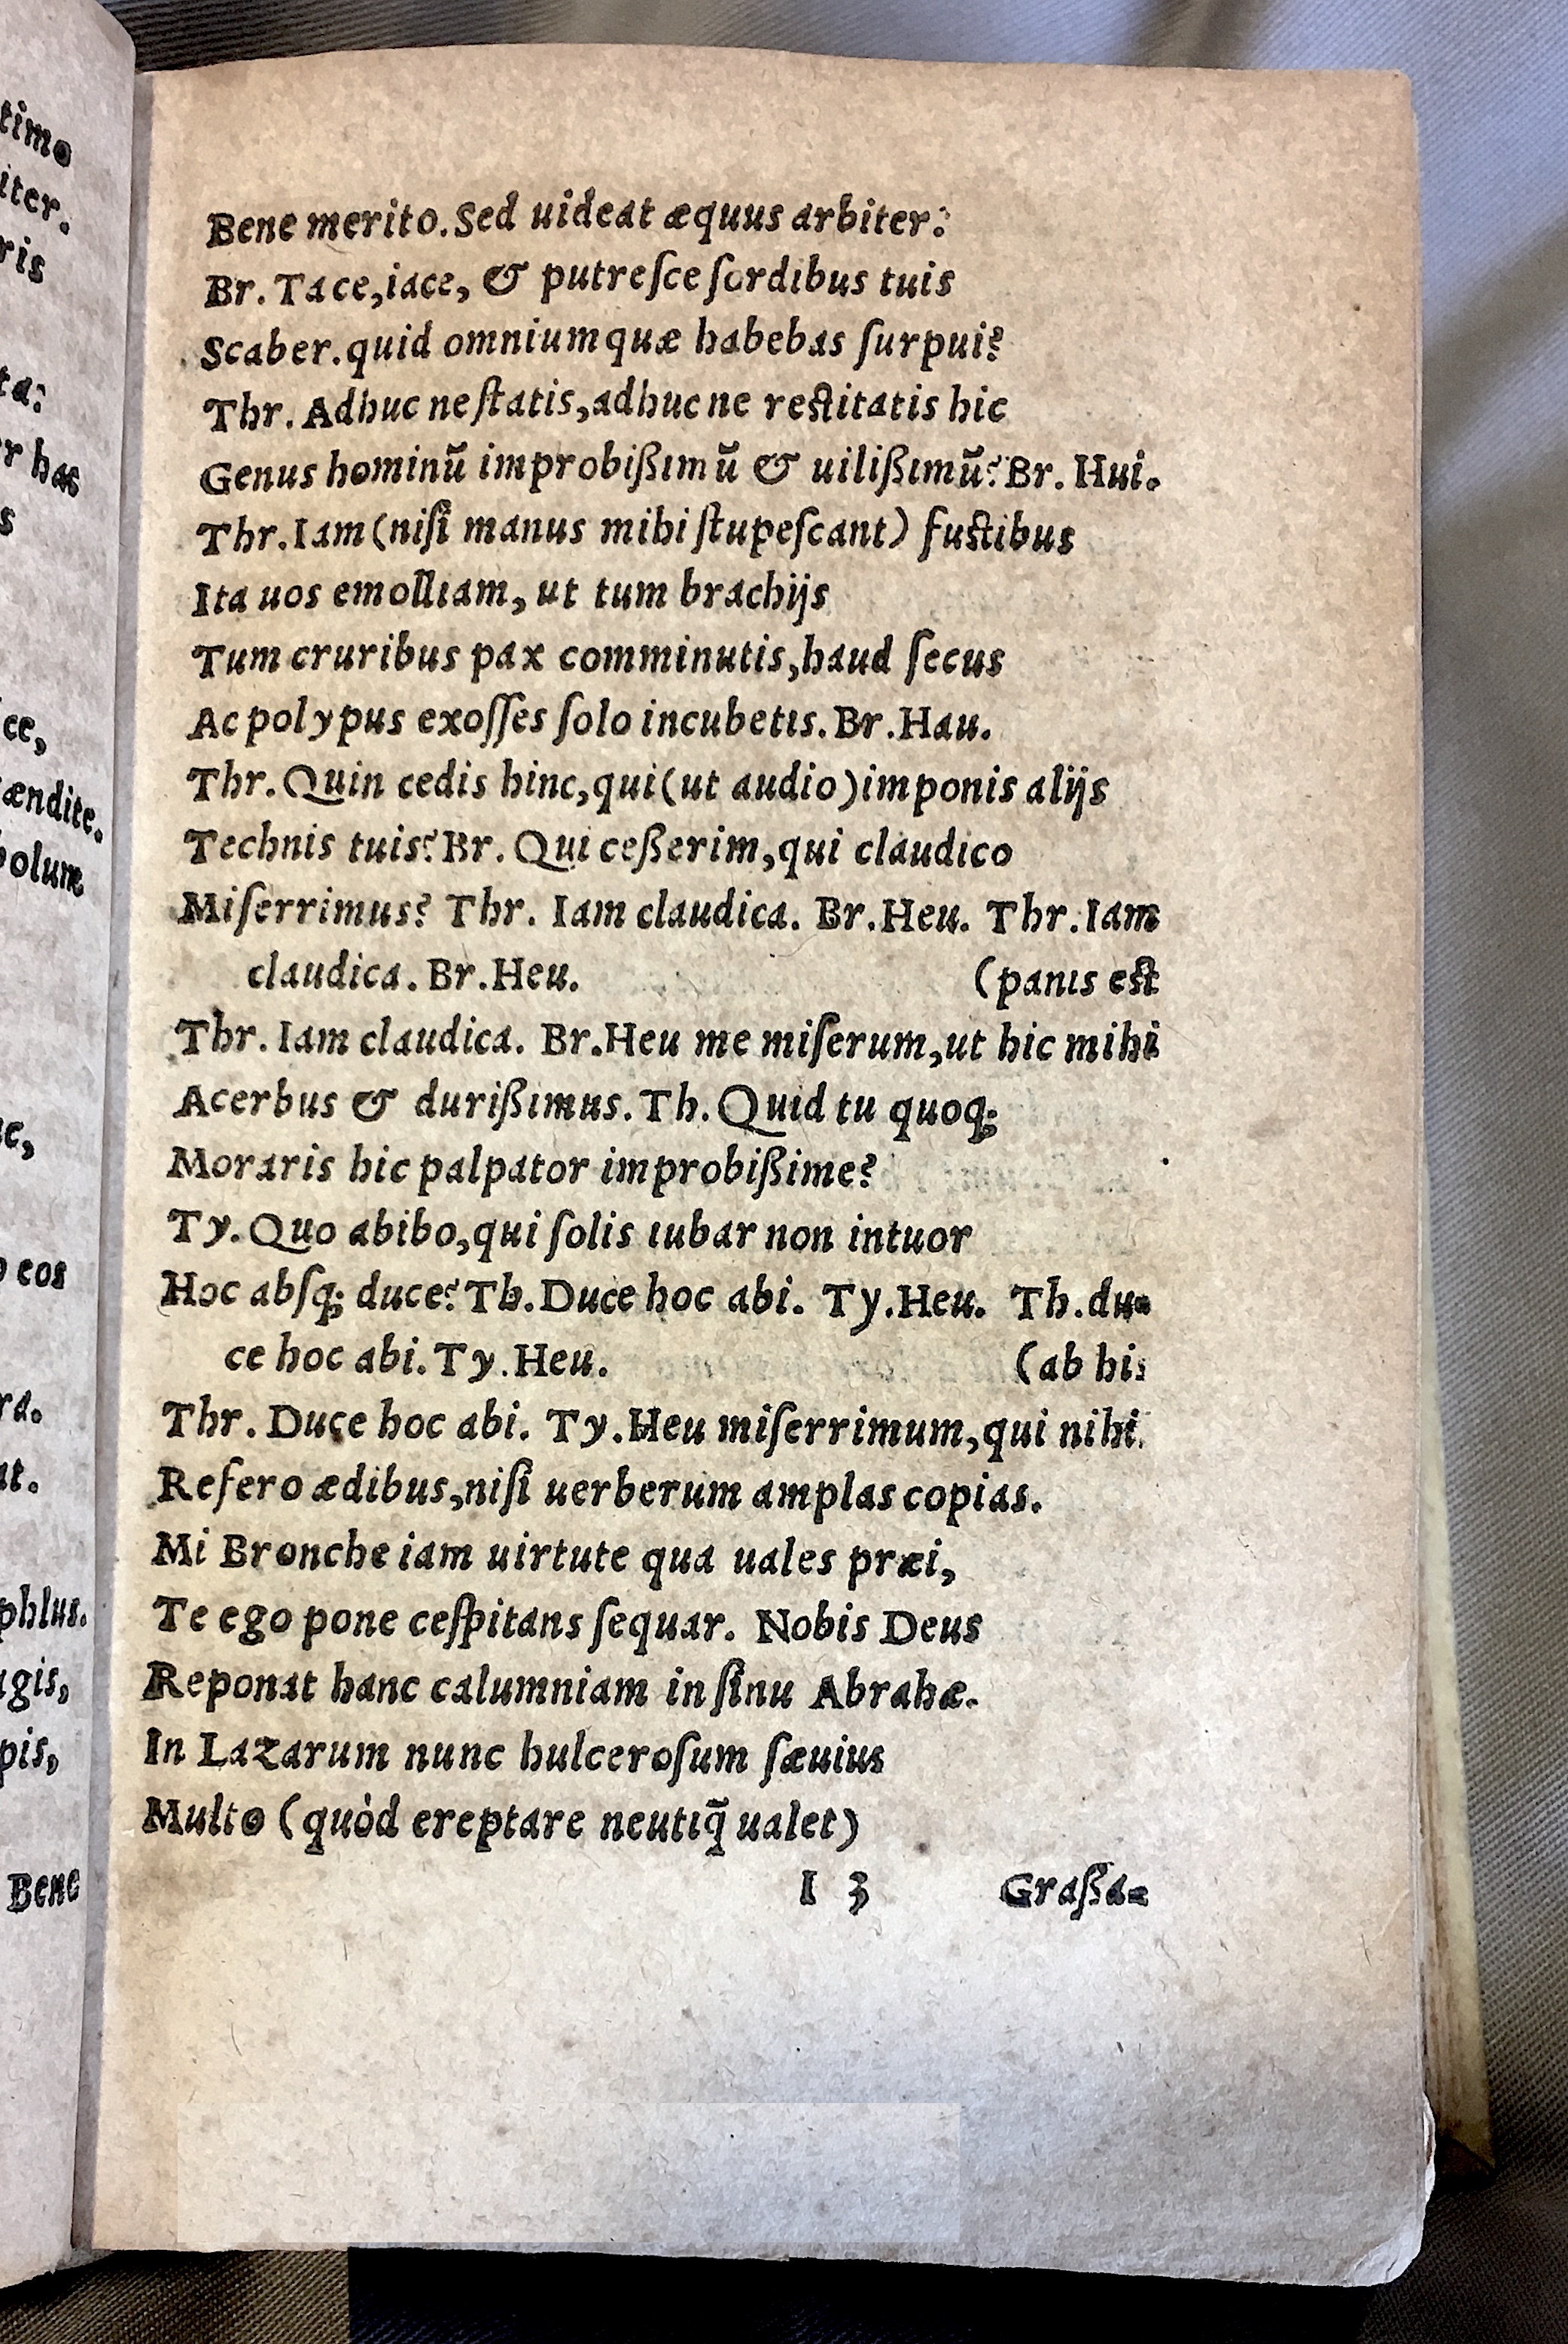 timo
iter.
ris
ta:
r has
s
ce,
ændite.
bolum
c,
o eos
ra.
at.
phlus.
agis,
pis,
Bene
Bene merito. Sed uideat æquus arbiter:
Br. Tace,iace, & putreſce ſordibus tuis
Scaber.quid omnium quæ habebas ſurpui?
Thr. Adhuc ne ſtatis,adhuc ne reſtitatis hic
Genus hominũ improbißimũ & uilißimũ? Br. Hui.
Thr.Iam (niſi manus mihi ſtupeſcant) fuſtibus
Ita uos emolliam, ut tum brachijs
Tum cruribus pax comminutis,haud ſecus
Ac polypus exoſſes ſolo incubetis. Br.Hau.
Thr. Quin cedis hinc,qui(ut audio)imponis alijs
Technis tuis? Br. Qui ceßerim,qui claudico
Miſerrimus? Thr. Iam claudica. Br.Heu. Thr.Iam
claudica. Br.Heu. (panis eſt
Thr. Iam claudica. Br.Heu me miſerum,ut hic mihi
Acerbus & durißimus. Th. Quid tu quoq;
Moraris hic palpator improbißime?
Ty. Quo abibo,qui ſolis iubar non intuor
Hoc abſq; duce? Th.Duce hoc abi. Ty.Heu. Th.du=
ce hoc abi. Ty.Heu. (ab his
Thr. Duce hoc abi. Ty.Heu miſerrimum,qui nihi.
Refero ædibus,niſi uerberum amplas copias.
Mi Bronche iam uirtute qua uales præi,
Te ego pone ceſpitans ſequar. Nobis Deus
Reponat hanc calumniam in ſinu Abrahæ.
In Lazarum nunc hulceroſum ſæuius
Multo (quòd ereptare neutiq̃ ualet)
I 3 Graßa=